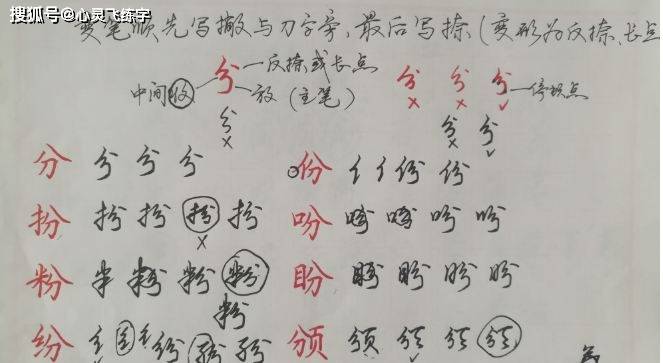 搜狐号@心灵飞练字
变笔顺先写撇与刀字旁,最后写捺(变形为反捺、长点
分 一反捺或长点
中间收 放(主笔) 分 分 分 一停顿点
分 分 分
分 分 分 分 份 亻 亻 份 份
扮 扮 扮 扮 扮 吩 吩 吩 吩 吩
粉 半 粉 粉 粉 盼 盼 盼 盼 盼
粉
纷 纷 纷 纷 颁 颁 颁 颁 颁